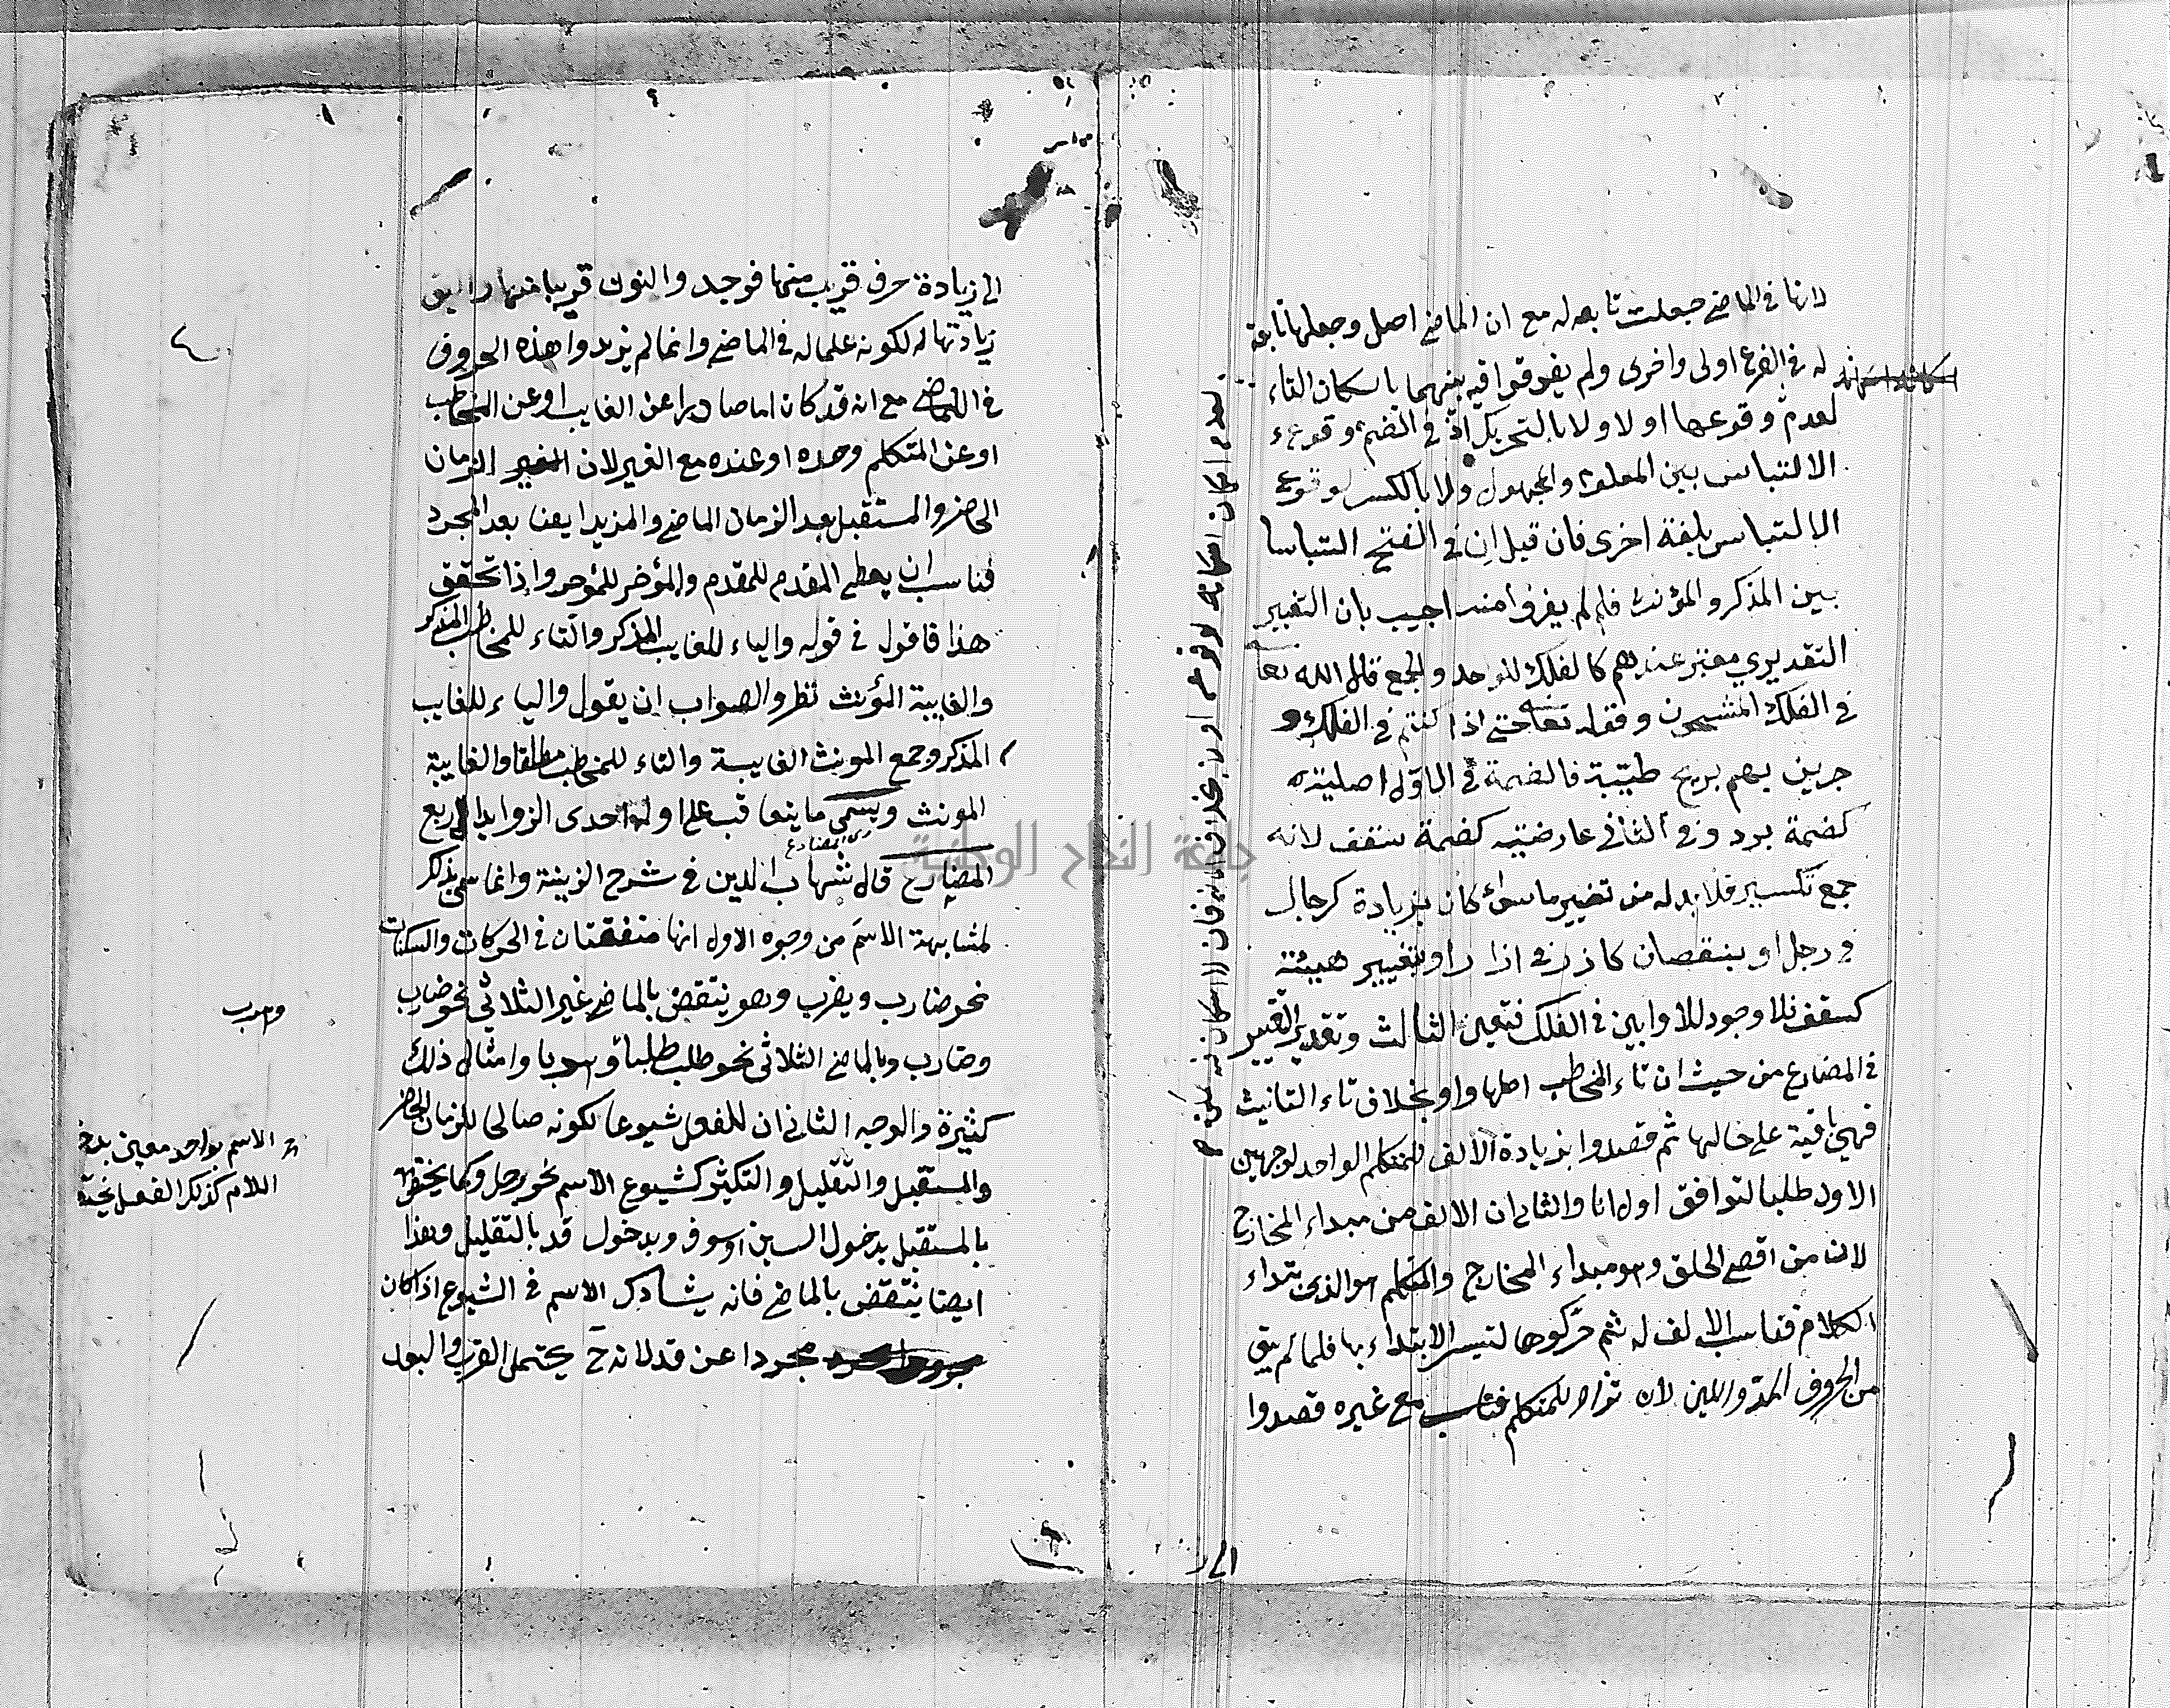 لانها في الماضي جعلت تابعه له مع ان الماضي اصل وجعلها تابعة
له في الفرع اولى واخرى ولم يفرقوا فيه بينهما باسكان التاء
لعدم وقوعها اولا ولا بالتحريك اذ في الضم وقوع
الالتباس بين المعلوم والمجهول ولا بالكسر لوقوع
الالتباس بلغة اخرى فان قيل ان في الفتح التباسا
بين المذكر والمؤنث فلم لم يفروا منه اجيب بان التغيير
التقديري معتبر عندهم كالفلك للواحد والجمع قال الله تعا
في الفلك المشحون وقوله تعا حتى اذا كنتم في الفلك و
جرين بهم بريح طيبة فالضمة في الاول اصلية
كضمة برد وفي الثاني عارضية كضمة سقف لانه
جمع تكسير فلا بد له من تغيير ما سواء كان بزيادة كرجال
في رجل او بنقصان كازر في ازار او بتغيير هيئة
كسقف فلا وجود للاوابين في الفلك فتعين الثالث وتقدير التغيير
في المضارع من حيث ان تاء المخاطب اصلها واو بخلاف تاء التانيث
فهي باقية على حالها ثم قصدوا بزيادة الالف للمتكلم الواحد لوجهين
الاول طلبا لتوافق اول انا والثاني ان الالف من مبداء المخارج
لانه من اقصى الحلق وهو مبداء المخارج والمتكلم هو الذي يبتداء
الكلام فناسب الالف له ثم حركوها لتيسر الابتداء بها فلما لم يبق
من الحروف المد واللين لان تزاد للمتكلم مع غيره قصدوا
الى
الى زيادة حرف قريب منها فوجد والنون قريبا منها
زيادتها له لكونه علما له في الماضي وانما لم يزيدوا هذه الحروف
في الماضي مع انه قد كان اما صادرا عن الغايب او عن المخاطب
او عن المتكلم وحده او عنده مع الغير لان الزمان
الحاضر والمستقبل بعد الزمان الماضي والمزيد ايضا بعد المجرد
فناسب ان يعطى المقدم للمقدم والمؤخر للمؤخر واذا تحقق
هذا فاقول في قوله والياء للغايب المذكر والتاء للمخاطب المذكر
والغايبة المؤنث نظر والصواب ان يقول والياء للغايب
المذكر وجمع المونث الغايبة والتاء للمخاطب مطلقا والغايبة
المونث ويسمى ما يتعاقب على اوله احدى الزوايد الاربع
المضارع قال شهاب الدين في شرح الزينة وانما سمى بذلك
لمشابهة الاسم من وجوه الاول انها متفقتان في الحركات والسكنات
نحو ضارب ويضرب وهو ينتقض بالماضي غير الثلاثي نحو ضارب
وضارب وبالماضي الثلاثي نحو طلب طلبا وهرب هربا وامثال ذلك
كثيرة والوجه الثاني ان للفعل شيوعا لكونه صالحا للزمان الحاضر
والمستقبل والتقليل والتكثير كشيوع الاسم نحو رجل وكما يختص
بالمستقبل بدخول السين او سوف وبدخول قد بالتقليل وهذا
ايضا ينتقض بالماضي فانه يشارك الاسم في الشيوع اذا كان
مجردا عن قد لانه ح يحتمل القرب والبعد
وهرب
الاسم بواحد معين
اللام كذلك الفعل
جامعة النجاح الوطنية